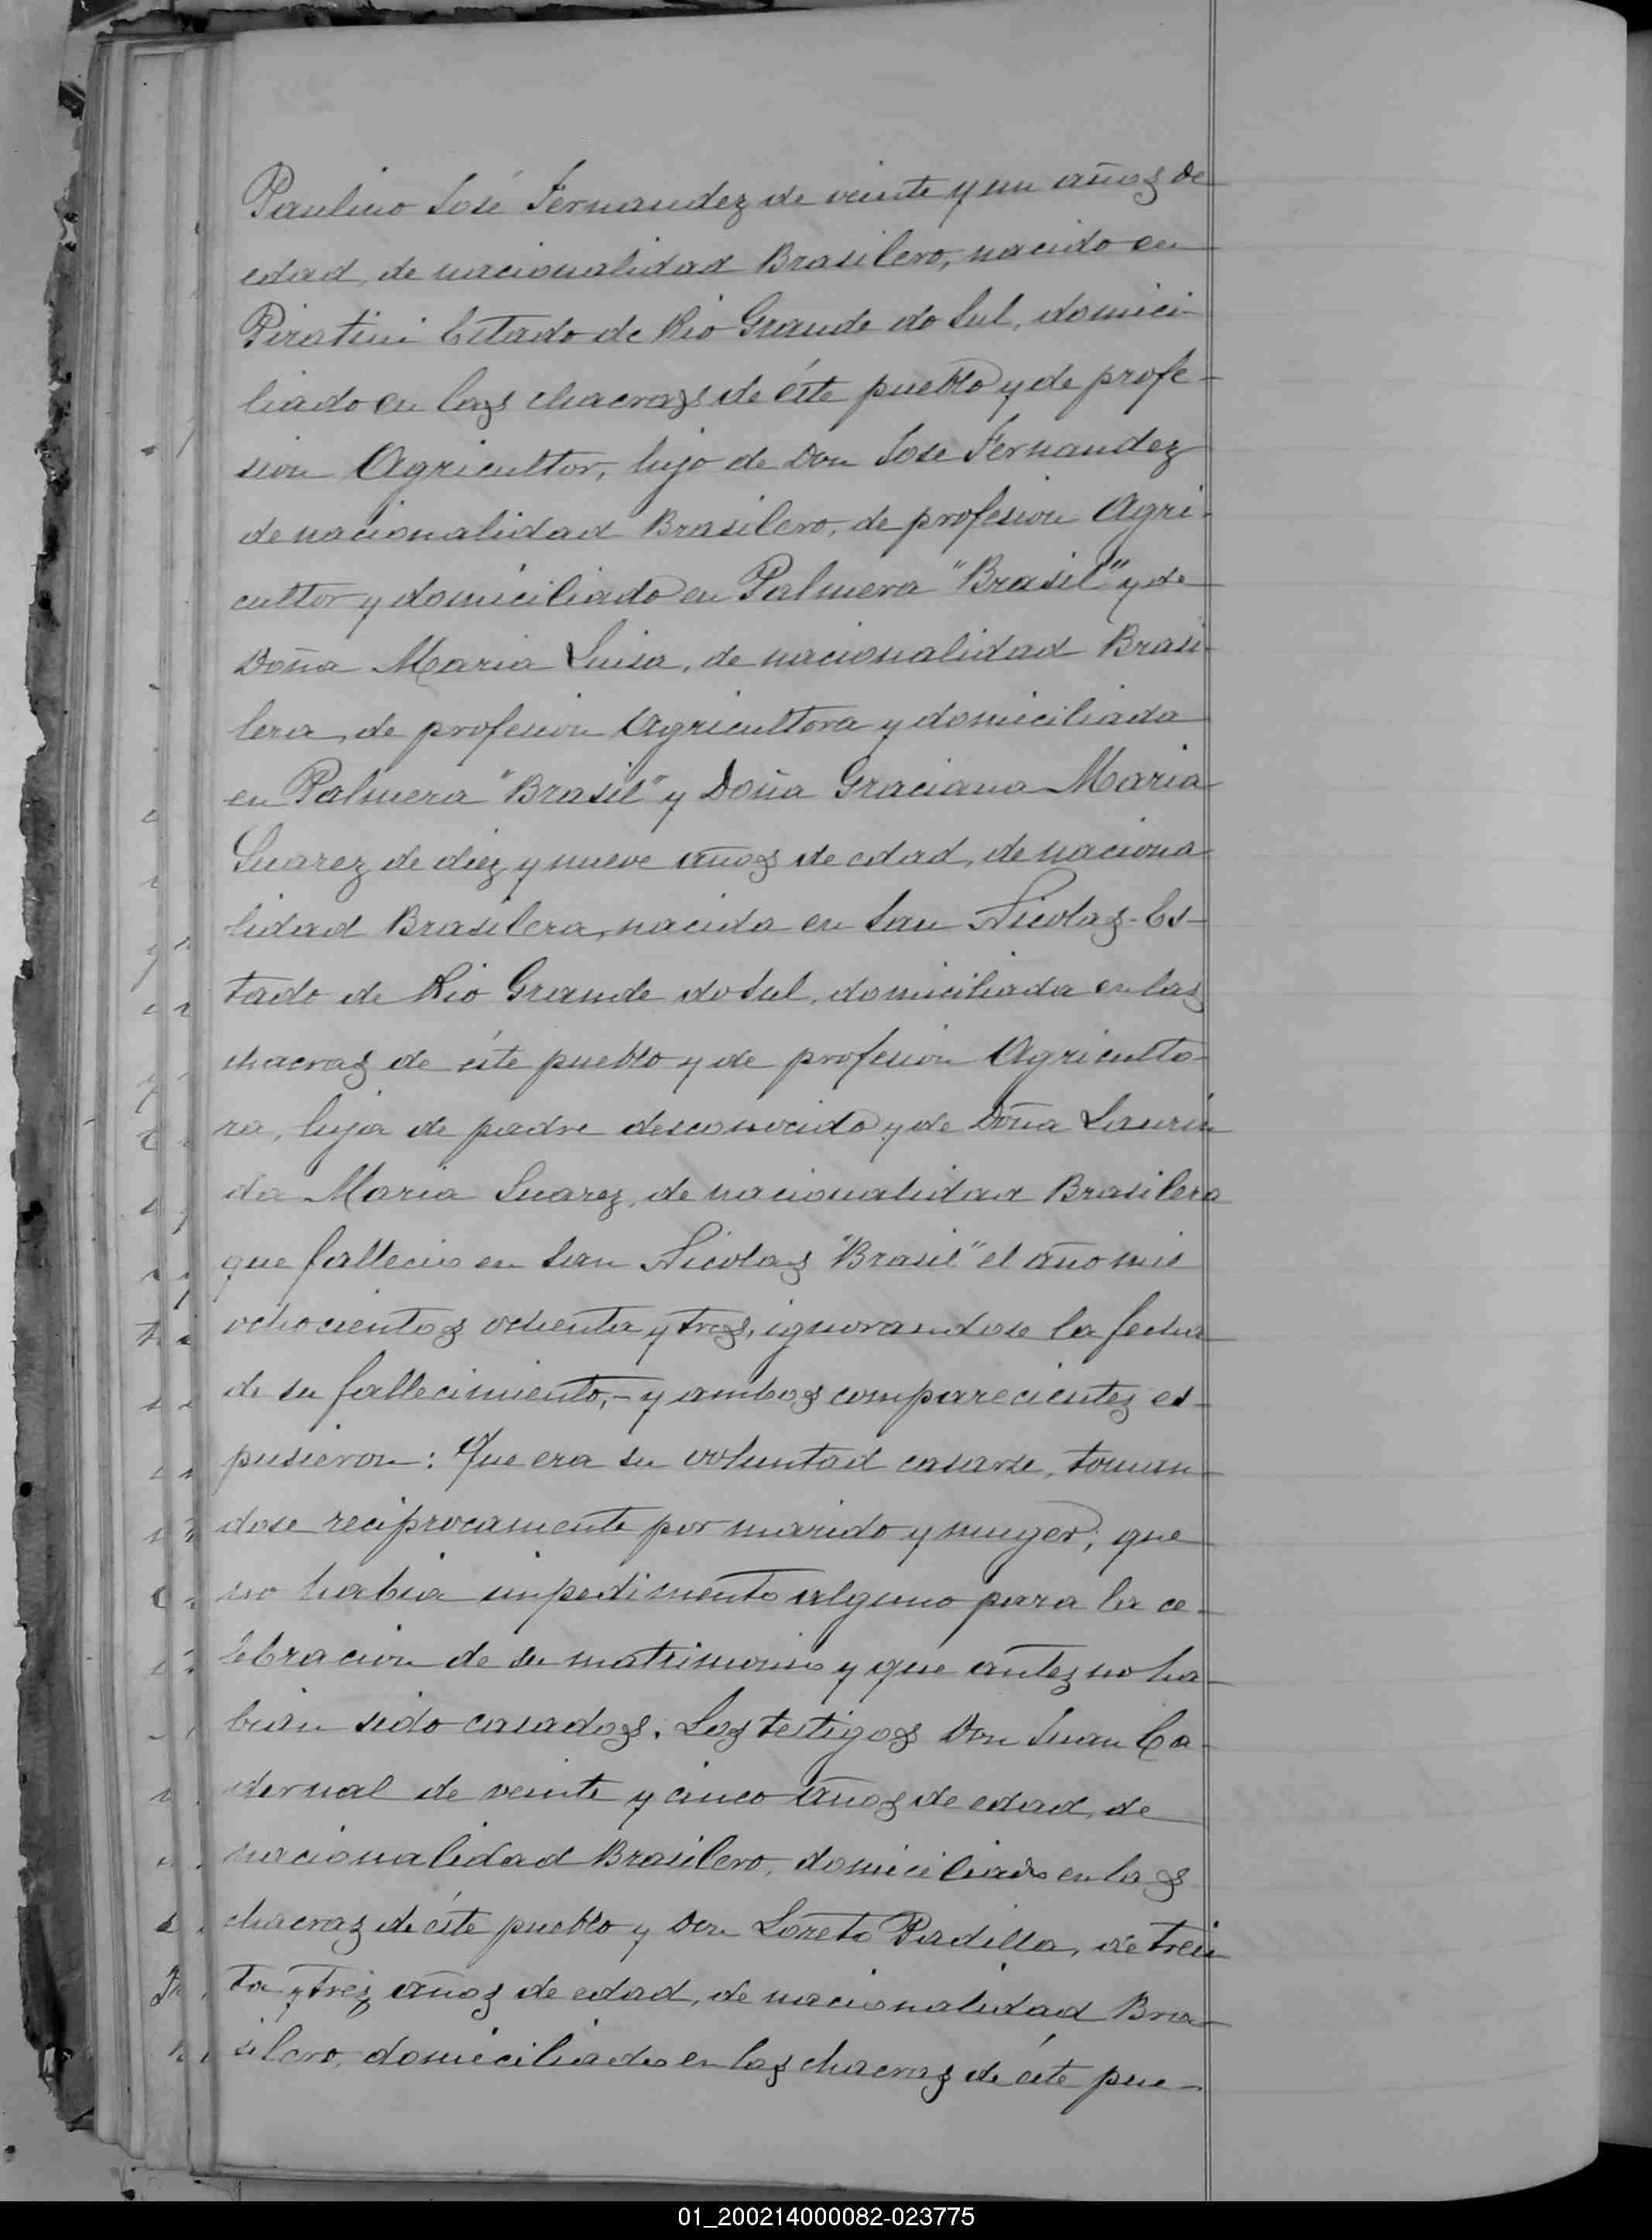 Paulino José Fernandez de veinte y un años de
edad, de nacionalidad Brasilero, nacido en
Piratini Estado de Rio Grande do Sul, domici-
liado en las chacras de éste pueblo y de profe-
sion Agricultor, hijo de Don José Fernandez
de nacionalidad Brasilero, de profesion Agri-
cultor y domiciliado en Palmera "Brasil" y de
Doña Maria Luisa, de nacionalidad Brasi-
lera, de profesion Agricultora y domiciliada
en Palmera "Brasil" y Doña Graciana Maria
Suarez de diez y nueve años de edad, de naciona
lidad Brasilera, nacida en San Nicolas-Es-
tado de Rio Grande do Sul, domiciliada en las
chacras de éste pueblo y de profesion Agriculto-
ra, hija de padre desconocido y de Doña Laurin
da Maria Suarez, de nacionalidad Brasilera
que fallecio en San Nicolas "Brasil" el año mil
ochocientos ochenta y tres, ignorandose la fecha
de su fallecimiento,- y ambos comparecientes es-
pusieron: Que era su voluntad casarse, toman-
dose reciprocamente por marido y muger; que
no habia impedimento alguno para la ce-
lebracion de su matrimonio y que antes no ha-
bian sido casados. Los testigos Don Juan Ca-
dernal de veinte y cinco años de edad, de
nacionalidad Brasilero, domiciliado en las
chacras de éste pueblo y Don Loreto Padilla, de trein
ta y tres años de edad, de nacionalidad Bra-
silero, domiciliado en las chacras de éste pue-
01_200214000082-023775